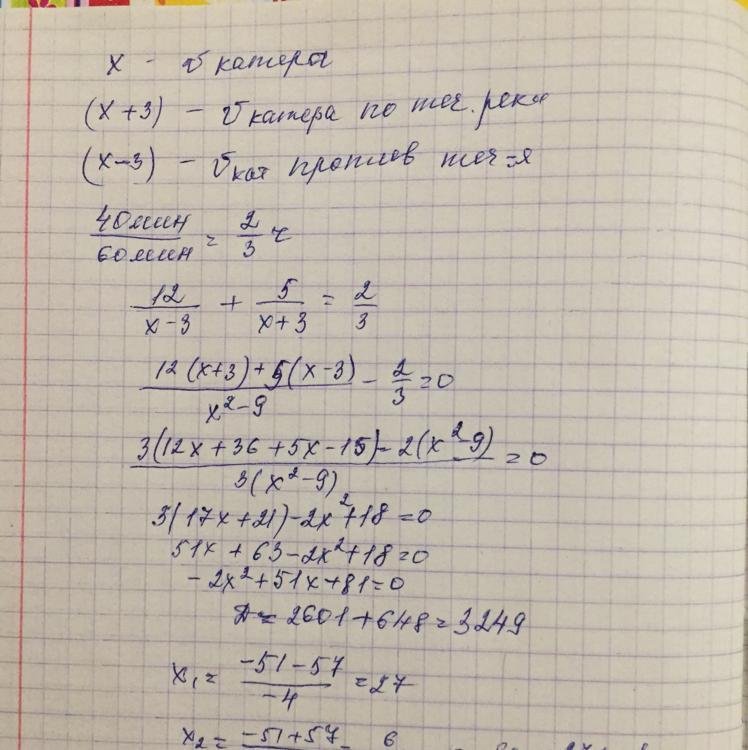 x - v катера
(x+3) - v катера по теч. реки
(x-3) - v кат против теч-я
40мин/60мин = 2/3 ч
12/(x-3) + 5/(x+3) = 2/3
(12(x+3)+5(x-3))/(x²-9) - 2/3 = 0
(3(12x+36+5x-15)-2(x²-9))/(3(x²-9)) = 0
3(17x+21)-2x²+18=0
51x+63-2x²+18=0
-2x²+51x+81=0
D = 2601+648=3249
x₁ = (-51-57)/(-4) = 27
x₂ = -51+57 6